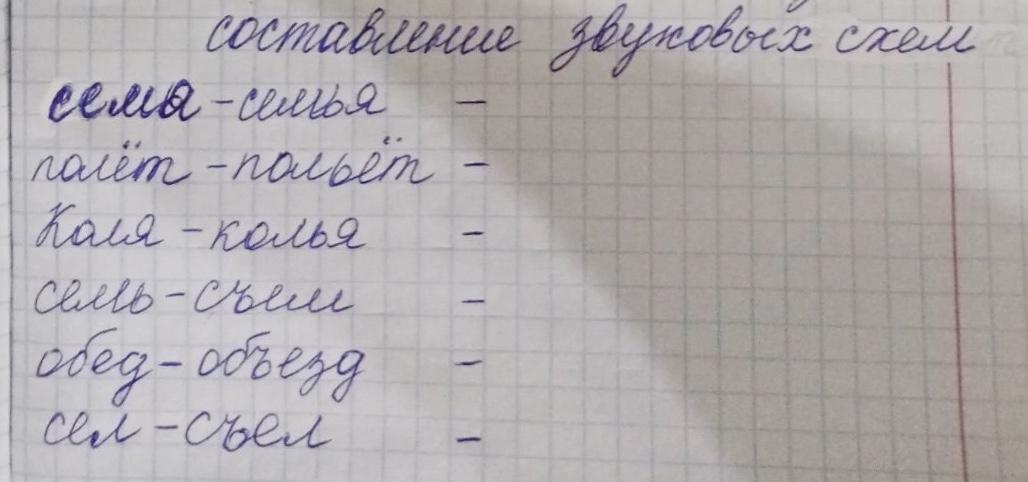 составление звуковых схем
сема - семья -
полёт - польёт -
Коля - колья -
семь - съем -
обед - объезд -
сел - съел -